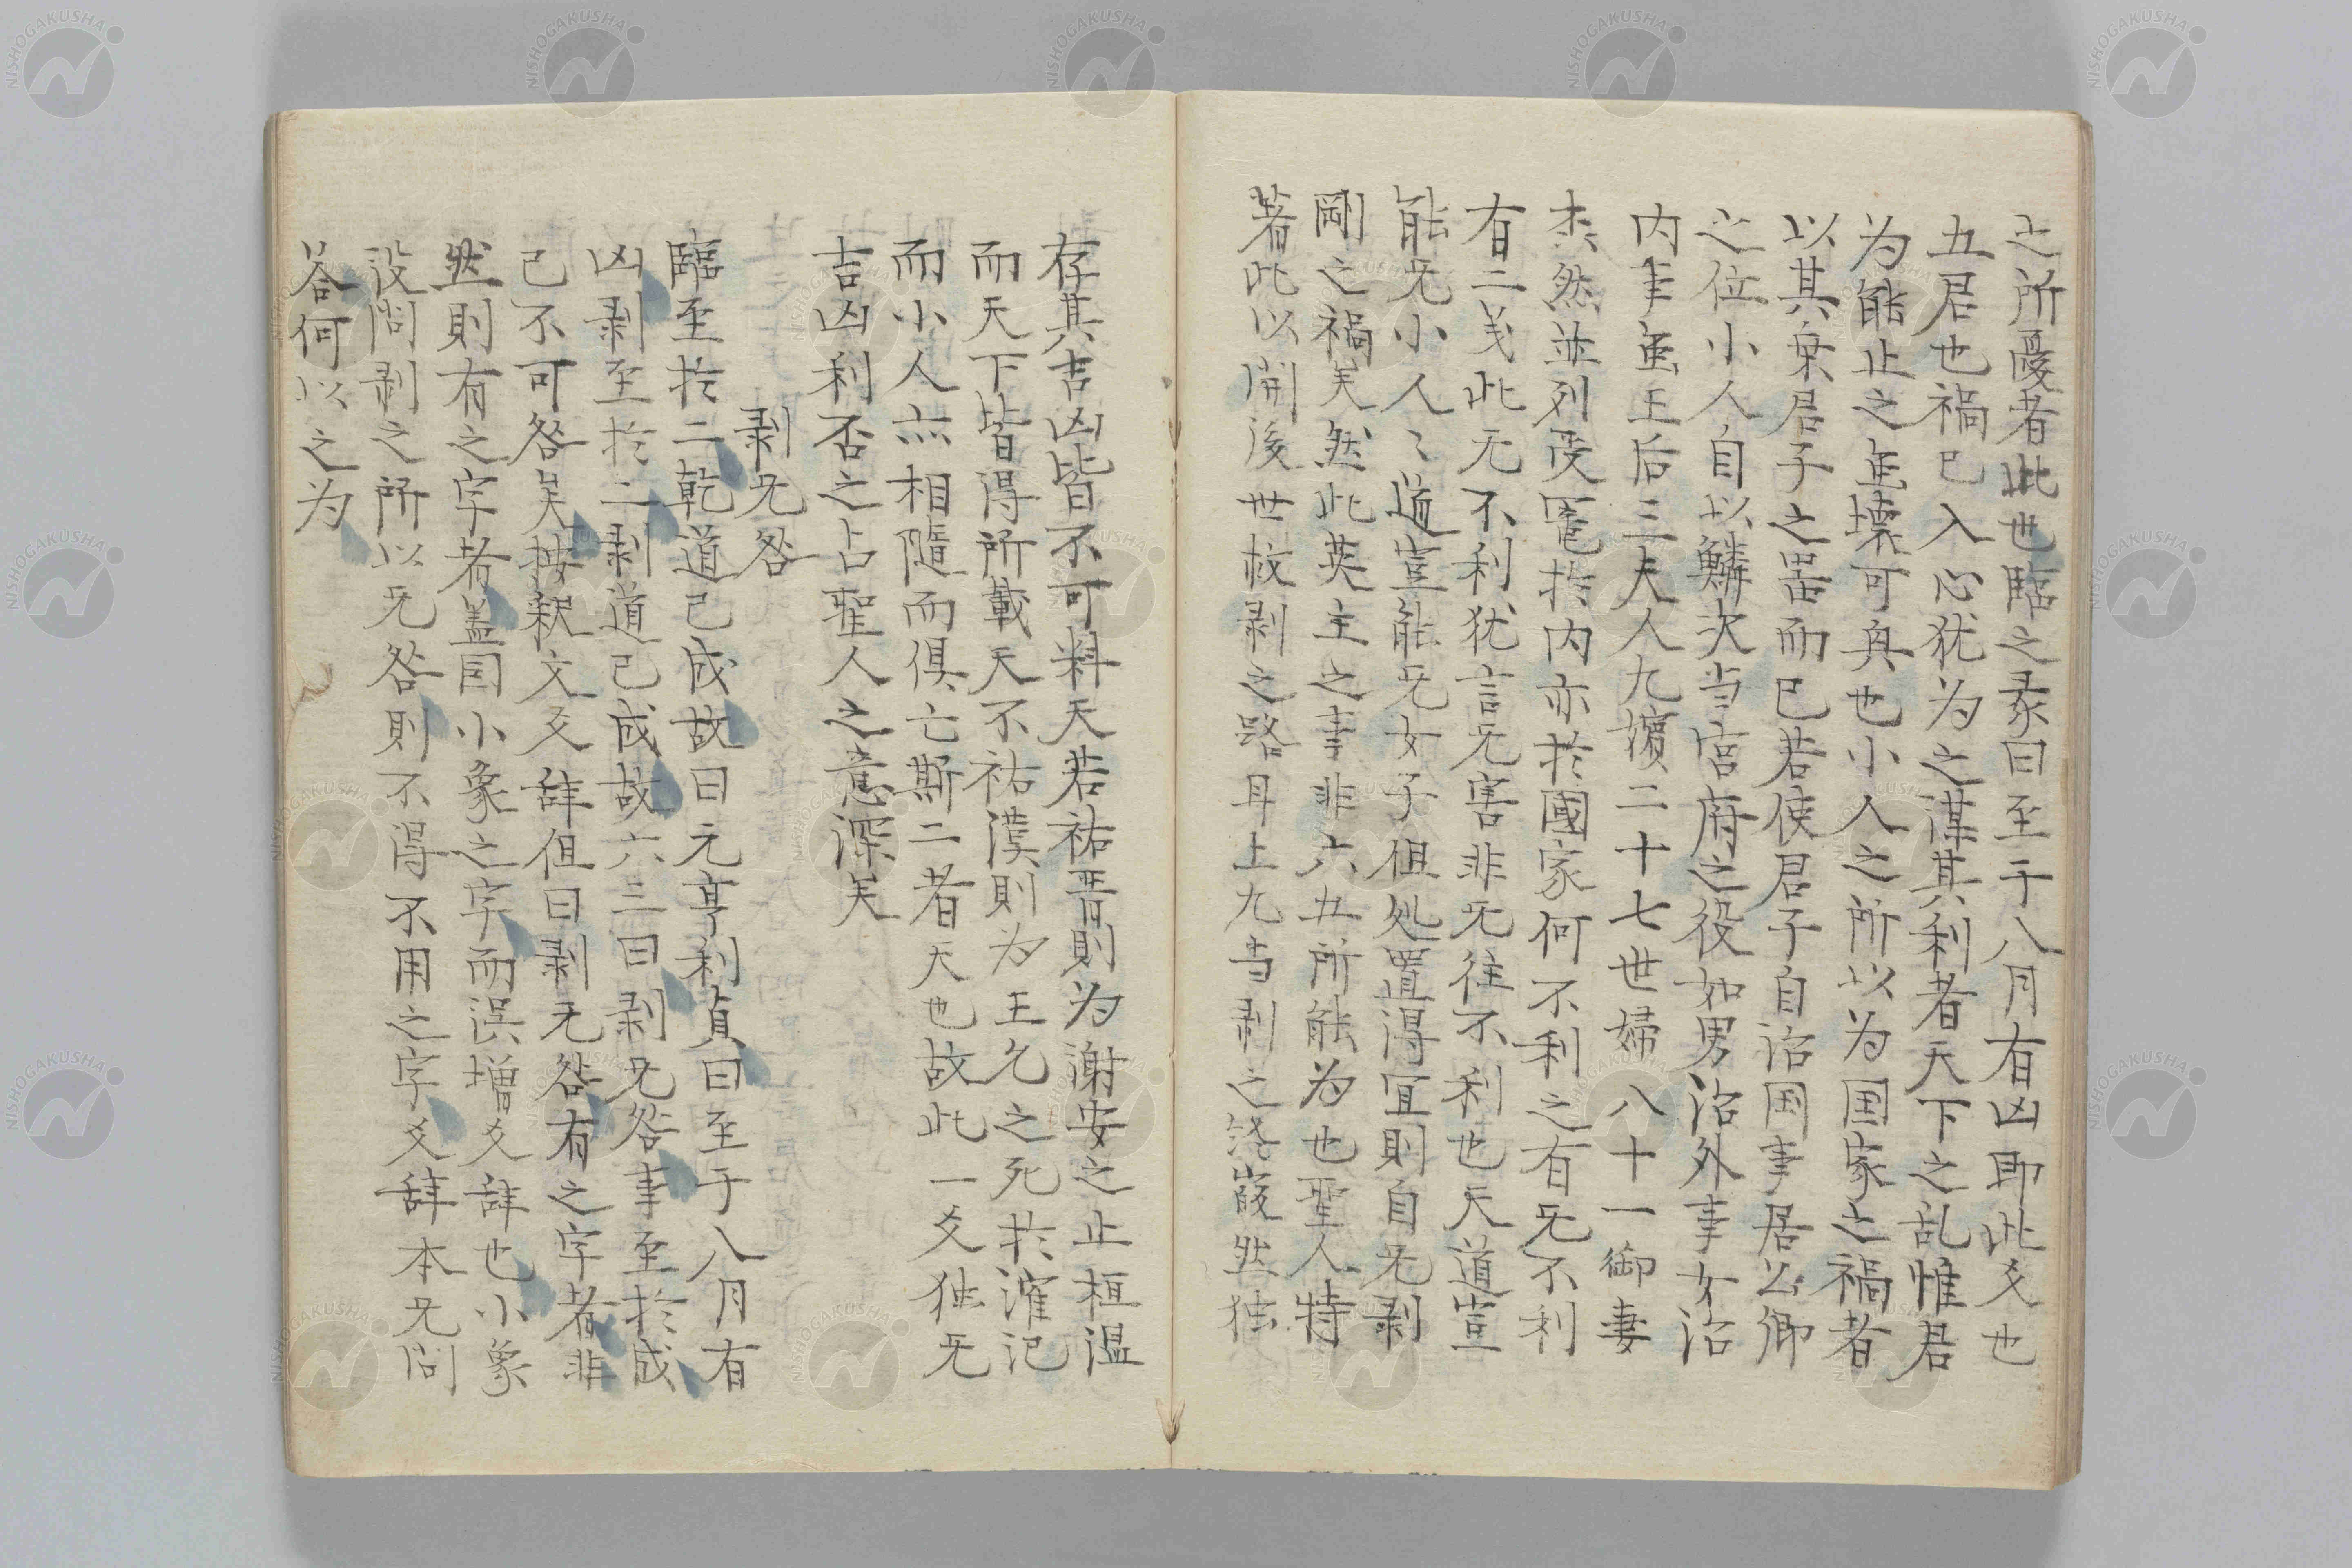 之所憂者此也臨之彖曰至于八月有凶即此爻也
五君也禍已入心犹为之謀其利者天下之乱惟君
为能止之無壊可興也小人之所以为国家之禍者
以其棄君子之器而已若使君子自治国事居公卿
之位小人自以鱗次当宮府之役如男治外事女治
内事無王后三夫人九嬪二十七世婦八十一御妻
杰然並列受寵於内亦於國家何不利之有无不利
有二義此无不利犹言无害非无往不利也天道豈
能无小人〻道豈能无女子但処置得宜則自无剥
剛之禍矣然此英主之事非六五所能为也聖人特
著此以開後世救剥之路耳上九当剥之終巌然独
存其吉凶皆不可料天若祐晋則为謝安之止桓温
而天下皆得所載天不祐漢則为王允之死於漼氾
而小人亦相隨而俱亡斯二者天也故此一爻独无
吉凶利否之占聖人之意深矣
剥无咎
臨至於二乾道已成故曰元亨利貞曰至于八月有
凶剥至於二剥道已成故六三曰剥无咎事至於成
已不可咎矣按釈文爻辞但曰剥无咎有之字者非
然則有之字者盖因小象之字而誤増爻辞也小象
設問剥之所以无咎則不得不用之字爻辞本无問
荅何以之为
NISHOGAKUSHA